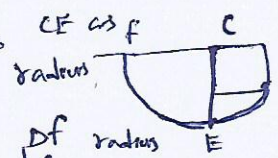 CE as F C
radius
Df radius E